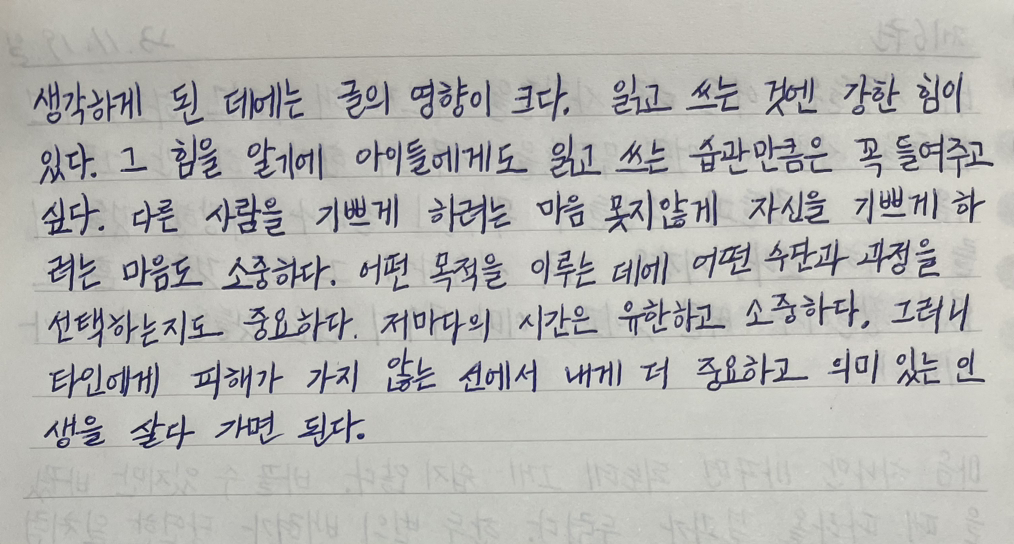 생각하게 된 데에는 글의 영향이 크다. 읽고 쓰는 것엔 강한 힘이
있다. 그 힘을 알기에 아이들에게도 읽고 쓰는 습관만큼은 꼭 들여주고
싶다. 다른 사람을 기쁘게 하려는 마음 못지않게 자신을 기쁘게 하
려는 마음도 소중하다. 어떤 목적을 이루는 데에 어떤 수단과 과정을
선택하는지도 중요하다. 저마다의 시간은 유한하고 소중하다. 그러니
타인에게 피해가 가지 않는 선에서 내게 더 중요하고 의미 있는 인
생을 살다 가면 된다.